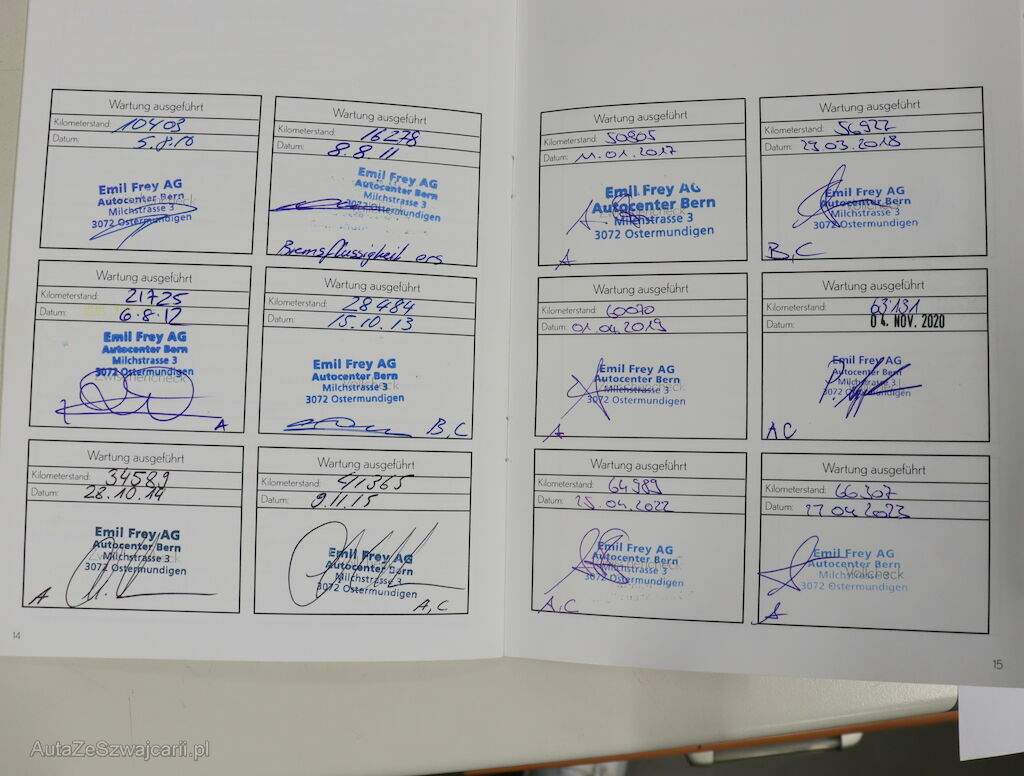 Wartung ausgeführt
Kilometerstand: 10403
Datum: 5.8.10
Emil Frey AG
Autocenter Bern
Milchstrasse 3
3072 Ostermundigen
Wartung ausgeführt
Kilometerstand: 16278
Datum: 8.8.11
Emil Frey AG
Autocenter Bern
Milchstrasse 3
3072 Ostermundigen
Bremsflüssigkeit ers
Wartung ausgeführt
Kilometerstand: 21725
Datum: 6.8.12
Emil Frey AG
Autocenter Bern
Milchstrasse 3
3072 Ostermundigen
Zwischencheck
A
Wartung ausgeführt
Kilometerstand: 28484
Datum: 15.10.13
Emil Frey AG
Autocenter Bern
Milchstrasse 3
3072 Ostermundigen
B,C
Wartung ausgeführt
Kilometerstand: 34589
Datum: 28.10.14
Emil Frey AG
Autocenter Bern
Milchstrasse 3
3072 Ostermundigen
A
Wartung ausgeführt
Kilometerstand: 41365
Datum: 9.11.15
Emil Frey AG
Autocenter Bern
Milchstrasse 3
3072 Ostermundigen
A,C
14
Wartung ausgeführt
Kilometerstand: 50805
Datum: 11.01.2017
Emil Frey AG
Autocenter Bern
Milchstrasse 3
3072 Ostermundigen
A
Wartung ausgeführt
Kilometerstand: 56922
Datum: 29 03.2018
Emil Frey AG
Autocenter Bern
Milchstrasse 3
3072 Ostermundigen
B,C
Wartung ausgeführt
Kilometerstand: 60070
Datum: 01.04.2019
Emil Frey AG
Autocenter Bern
Milchstrasse 3
3072 Ostermundigen
A
Wartung ausgeführt
Kilometerstand: 63'131
Datum: 04. NOV. 2020
Emil Frey AG
Autocenter Bern
Milchstrasse 3
3072 Ostermundigen
A C
Wartung ausgeführt
Kilometerstand: 64989
Datum: 25.04.2022
Emil Frey AG
Autocenter Bern
Milchstrasse 3
3072 Ostermundigen
A,C
Wartung ausgeführt
Kilometerstand: 66307
Datum: 27 04 2023
Emil Frey AG
Autocenter Bern
Milchstrasse 3
Vollcheck
3072 Ostermundigen
A
15
AutaZeSzwajcarii.pl